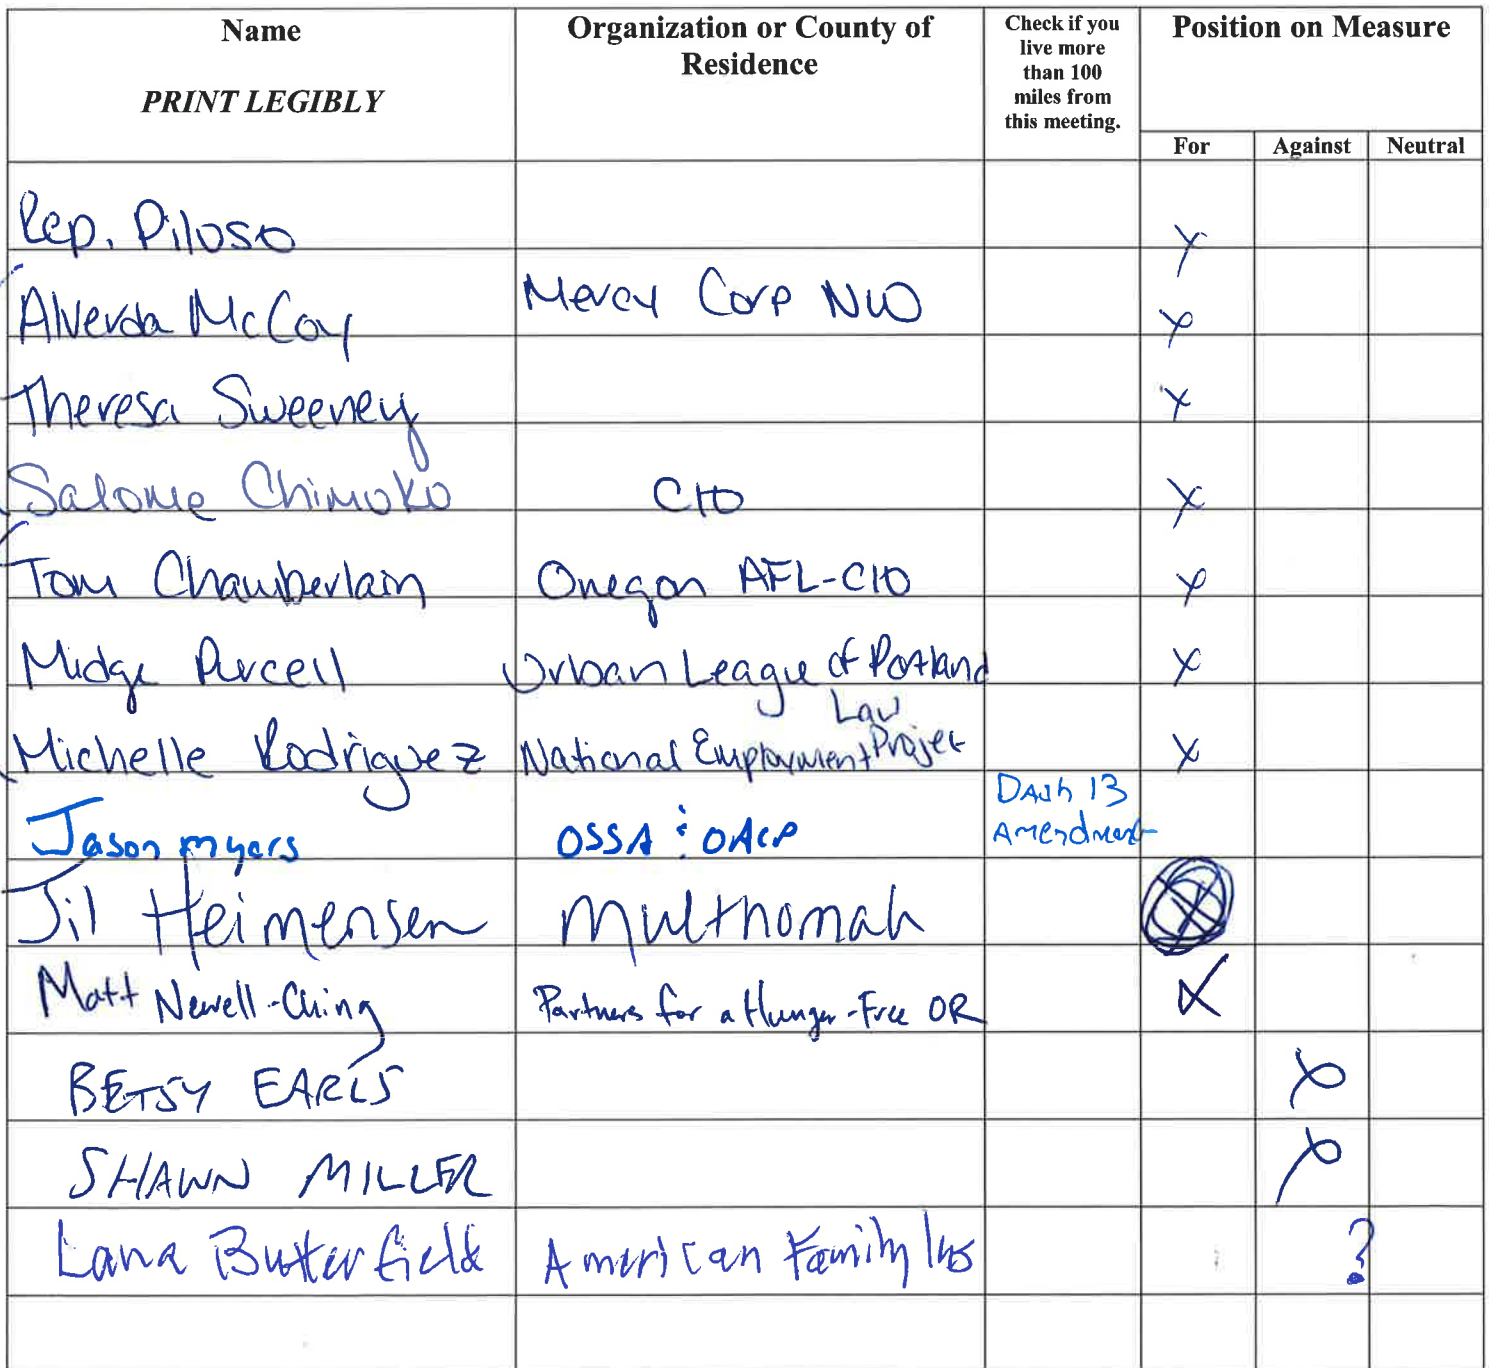 Name
PRINT LEGIBLY
Organization or County of
Residence
Check if you
live more
than 100
miles from
this meeting.
Position on Measure
For Against Neutral
Rep. Piloso X
Alverda McCoy Mercy Corp NW X
Theresa Sweeney X
Salome Chimoko CIO X
Tom Chamberlain Oregon AFL-CIO X
Midge Purcell Urban League of Portland X
Michelle Rodriguez National Employment Law Projec X
Jason Myers OSSA : OACP Dash 13
Amendment
Jil Heimensen Multnomah X
Matt Newell-Ching Partners for a Hunger-Free OR X
BETSY EARLS X
SHAWN MILLER X
Lana Butterfield American Family Ins ?